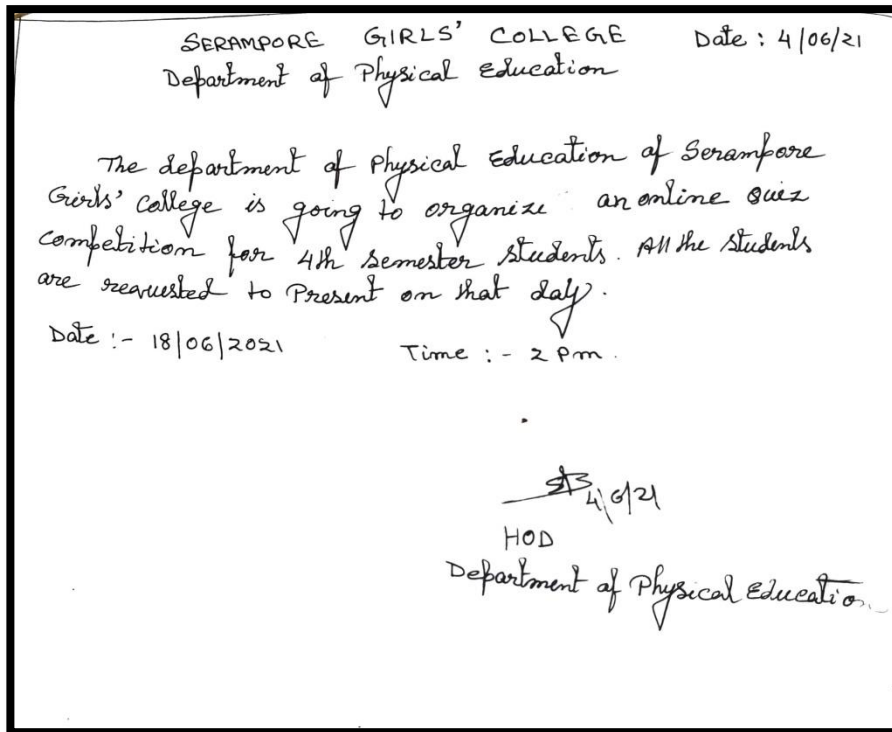 SERAMPORE GIRLS' COLLEGE Date : 4/06/21
Department of Physical Education
The department of Physical Education of Serampore
Girls' College is going to organize an online Quiz
Competition for 4th semester students. All the students
are requested to Present on that day.
Date :- 18/06/2021 Time :- 2 Pm.
4/6/21
HOD
Department of Physical Education